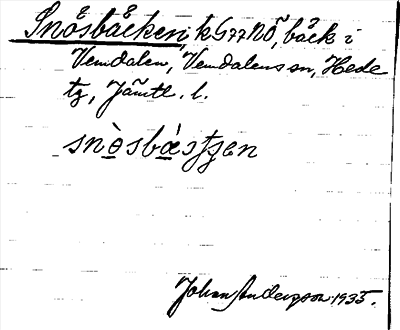 Snåsbäcken, k G77 NÖ, bäck i
Vemdalen, Vemdalens sn, Hede
tg, Jämtl. l.
Johan Anderzon 1935.